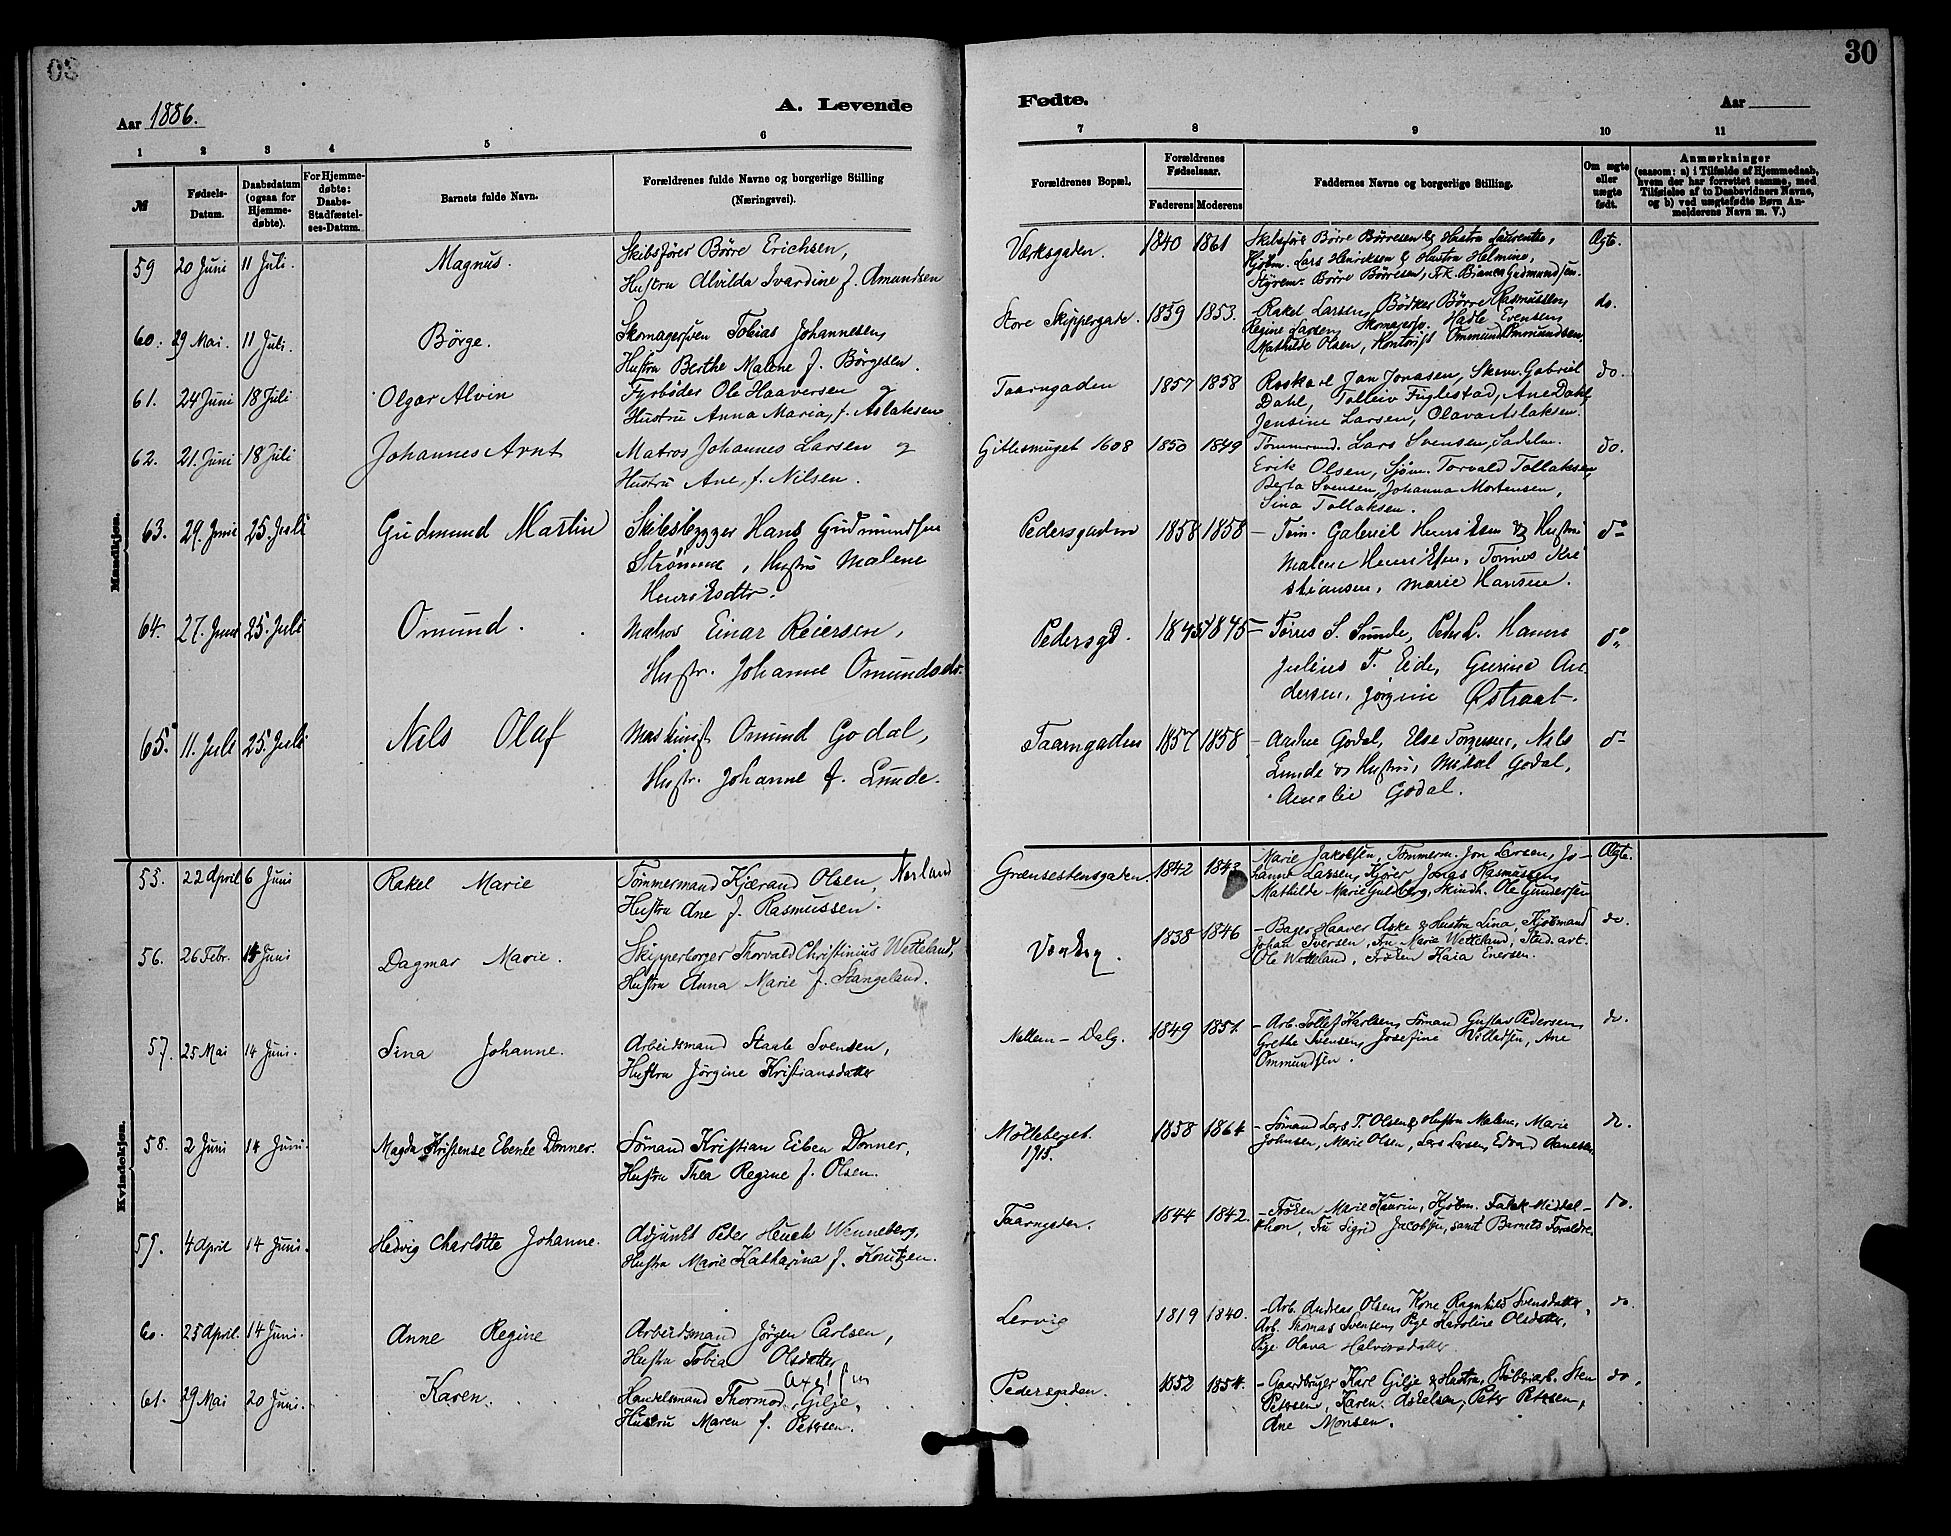 30
Aar 1886.
A. Levende
Fødte.
Aar
1 2 3 4 5 6 7 8 9 10 11
№
Fødsels-Datum.
Daabsdatum (ogsaa for Hjemmedøbte).
For Hjemmedøbte: Daabs-Stadfæstelses-Datum.
Barnets fulde Navn.
Forældrenes fulde Navne og borgerlige Stilling (Næringsvei).
Forældrenes Bopæl.
Forældrenes Fødselsaar.
Faderens Moderens
Faddernes Navne og borgerlige Stilling.
Om ægte eller uægte født.
Anmærkninger
(saasom: a) i Tilfælde af Hjemmedaab, hvem der har forrettet samme, med Tilføielse af to Daabsvidners Navne, og b) ved uægtefødte Børn Anmelderens Navn m. V.)
Mandkjøn.
59 20 Juni 11 Juli. Magnus. Skibsfører Børre Erichsen,
Hustru Alvilda Ivardine f. Amundsen
Værksgaden. 1840 1861 Skibsfører Børre Børresen & Hustru Laurentse,
Kjøbm. Lars Henriksen & Hustru Helmine,
Styrem. Børre Börresen, Frk. Bianca Gudmundsen. Ægte.
60. 29 Mai. 11 Juli. Børge. Skomagersven Tobias Johannesen,
Hustru Berthe Malene f. Börgesen.
Store Skippergade. 1859 1853. Rakel Larsen, Bødker Børre Rasmussen,
Regine Larsen, Skomagersv. Hadle Evensen,
Mathilde Olsen, Kontorist Ommund Ommundsen, do.
61. 24 Juni 18 Juli Olgar Alvin Fyrbøder Ole Haaversen og
Hustru Anna Maria, f. Aslaksen
Taarngaden 1857 1858 Jan Jonasen, Gabriel
Dahl, Tolleiv Fuglestad, Ane Dahl,
Jensine Larsen, Olava Aslaksen. do.
62. 21. Juni 18 Juli Johannes Arnt Matros Johannes Larsen og
Hustru Ane, f. Nilsen.
1608 1850 1849 Tømmermd. Lars Svensen, Sadelm.
Erik Olsen, Sjøm. Torvald Tollaksen,
Berta Svensen, Johanna Mortensen,
Sina Tollaksen. do.
63. 29. Juni 25. Juli Gudmund Martin Skibsbygger Hans Gudmundsen
Strømme, Hustru Malene
Henriksdtr.
Pedersgaden 1858 1858 – Tøm. Gabriel Henriksen & Hustru
Malene Henriksen, Tønnes Kri
stiansen, Marie Hansen. do
64. 27. Juni 25. Juli Omund. Matros Einar Reiersen,
Hustr. Johanne Omundsdr.
Pedersgd. 1845 1845 – Tørres S. Sunde, Peder L. Hauen
Julius T. Eide, Gurine An
dersen, Jørgine Østraat. do
65. 11. Juli 25. Juli Nils Olaf Maskinist Omund Godal,
Hustr. Johanne f. Lunde.
Taarngaden 1857 1858 – Godal, Else Torgersen, Nils
Lunde & Hustru, Mikal Godal,
Amalie Godal. do
Kvindekjøn.
55. 22 April 6 Juni Rakel Marie Tømmermand Kjærand Olsen, Nerland
Hustru Ane f. Rasmussen.
Grænsestensgaden 1842 1843 Marie Jakobsen, Tømmerm. Jon Larsen, Jo-
hanne Larsen, Kjører Jonas Rasmussen,
Mathilde Marie Guldberg, Skindh. Ole Gundersen Ægte.
56. 26 Febr. 14 Juni Dagmar Marie. Skipperborger Thorvald Christinius Wetteland,
Hustru Anna Marie f. Stangeland.
1838 1846 – Bager Haaver Aske & Hustru Lina, Kjøbmand
Johan Iversen, Fru Marie Wetteland, Stud. art.
Ole Wetteland, Frøken Kaia Enersen. do.
57. 25 Mai 14 Juni. Sina Johanne. Arbeidsmand Staale Svensen,
Hustru Jørgine Kristiansdatter
Mellem-Dalg. 1849 1851. – Arb. Tollef Karlsen, Sømand Gustav Pedersen,
Grethe Svensen, Josefine Villadsen, Ane
Ommundsen. do.
58. 2 Juni 14 Juni. Magda Kristense Ebenle Donner. Sømand Kristian Eiben Donner,
Hustru Thea Regine f. Olsen.
Mölleberget.
1915. 1858 1864 – Sømand Lars T. Olsen & Hustru Malene, Marie
Johnsen, Marie Olsen, Lars Larsen, Edvard do.
59. 4 April 14 Juni. Hedvig Charlotte Johanne. Adjunkt Peder Heuch Wenneberg,
Hustru Marie Katharina f. Knutzen.
Taarngaden. 1844 1842. – Frøken Marie Kaurin, Kjøbm. Falck Middel-
thon, Fru Sigrid Jacobsen, samt Barnets Forældre. do.
60. 25 April. 14 Juni. Anne Regine Arbeidsmand Jørgen Carlsen,
Hustru Tobia Olsdatter
Lervig 1819 1840. – Arb. Andreas Olsen, Kone Ragnhild Svensdatter,
Arb. Thomas Svensen, Pige Karoline Olsdatter,
Pige Olava Halvorsdatter do.
61. 29 Mai 20 Juni. Karen. Axelsen
Handelsmand Thormod Gilje,
Hustru Maren f. Petersen.
Pedersgaden. 1852 1854. – Gaardbruger Karl Gilje & Hustru, Sten
Petersen, Karen Petersen,
Ane Monsen. do.